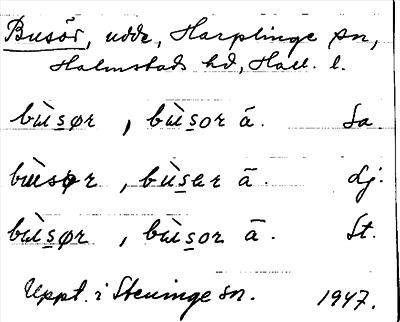 Busör, udde, Harplinge sn,
Halmstads hd, Hall. l.
bùsør, bùsor ā. Sa.
bùsør, bùsar ā. Lj.
bùsør, bùsor ā. St.
Uppt. i Steninge sn. 1947.